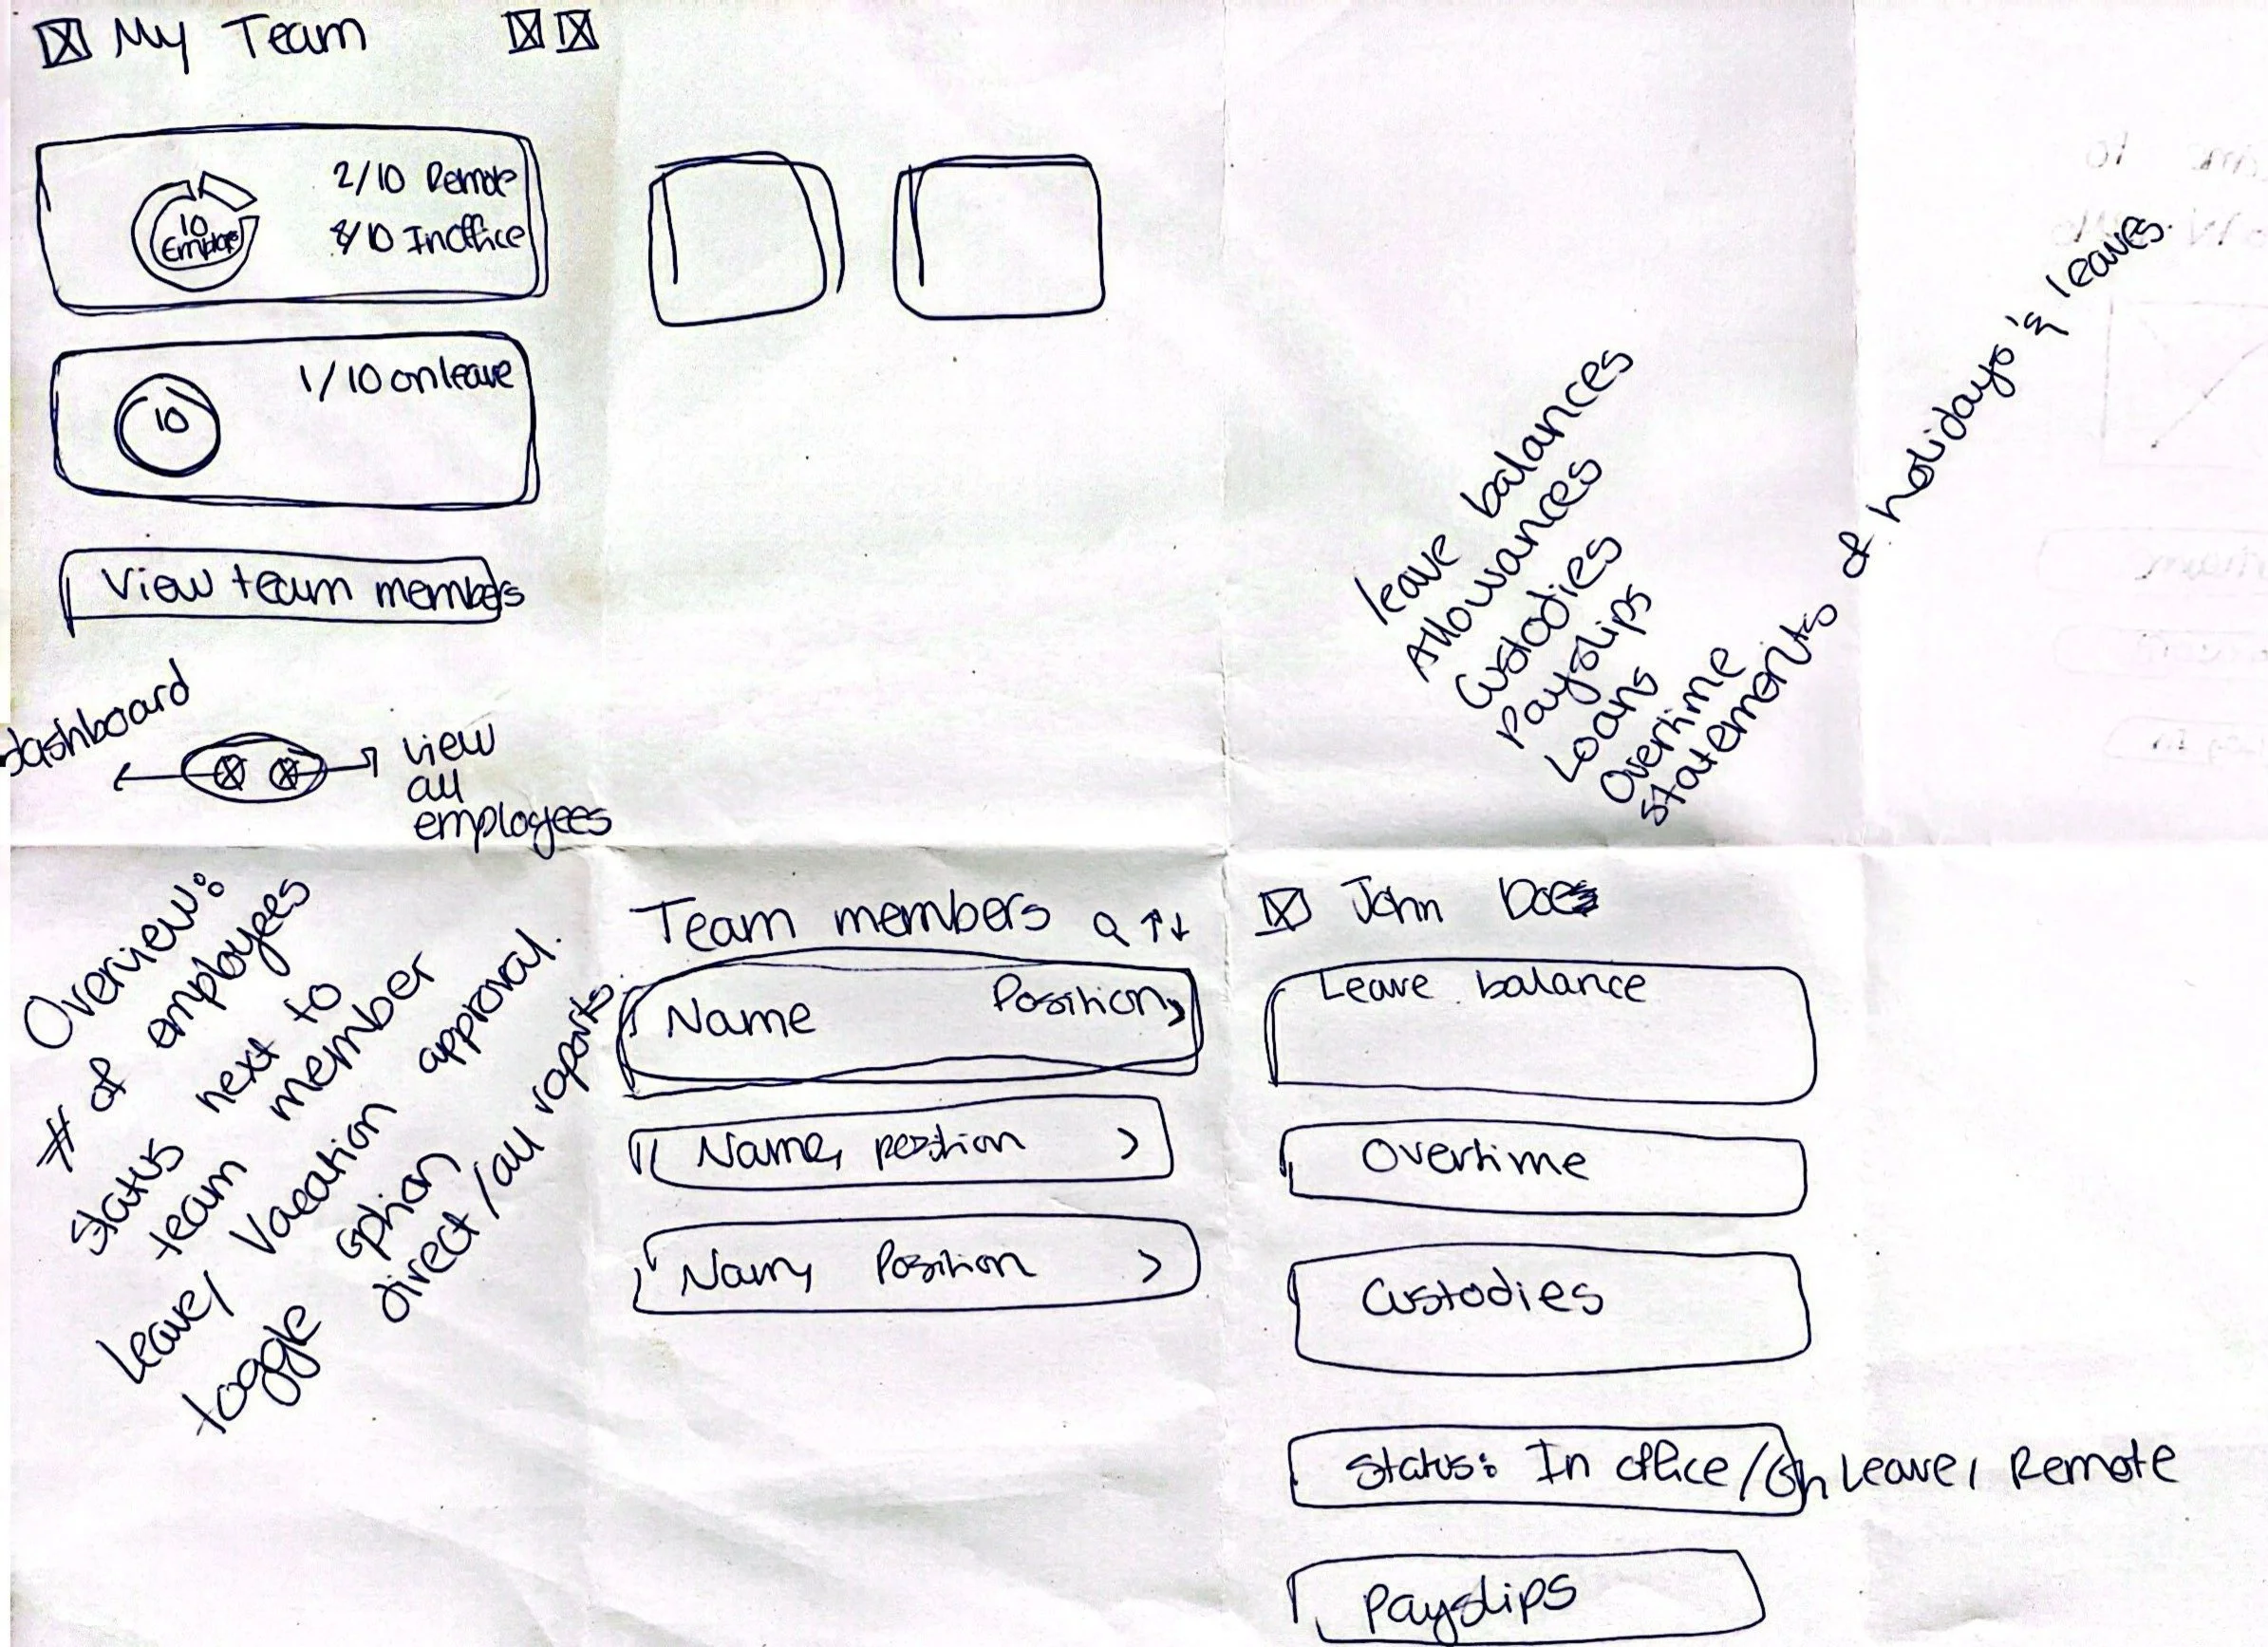 My Team
2/10 Remote
8/10 In Office
10
1/10 on leave
10
View team members
dashboard
view
all
employees
leave balances
Allowances
Custodies
Payslips
Loans
Overtime
statements of holidays & leaves
Overview:
# of employees
status next to
team member
Leave, Vacation approval.
toggle option
direct/all reports
Team members
Name Position >
Name, position >
Name, Position >
John Doe
Leave balance
Overtime
Custodies
Status: In office/On Leave, Remote
Payslips